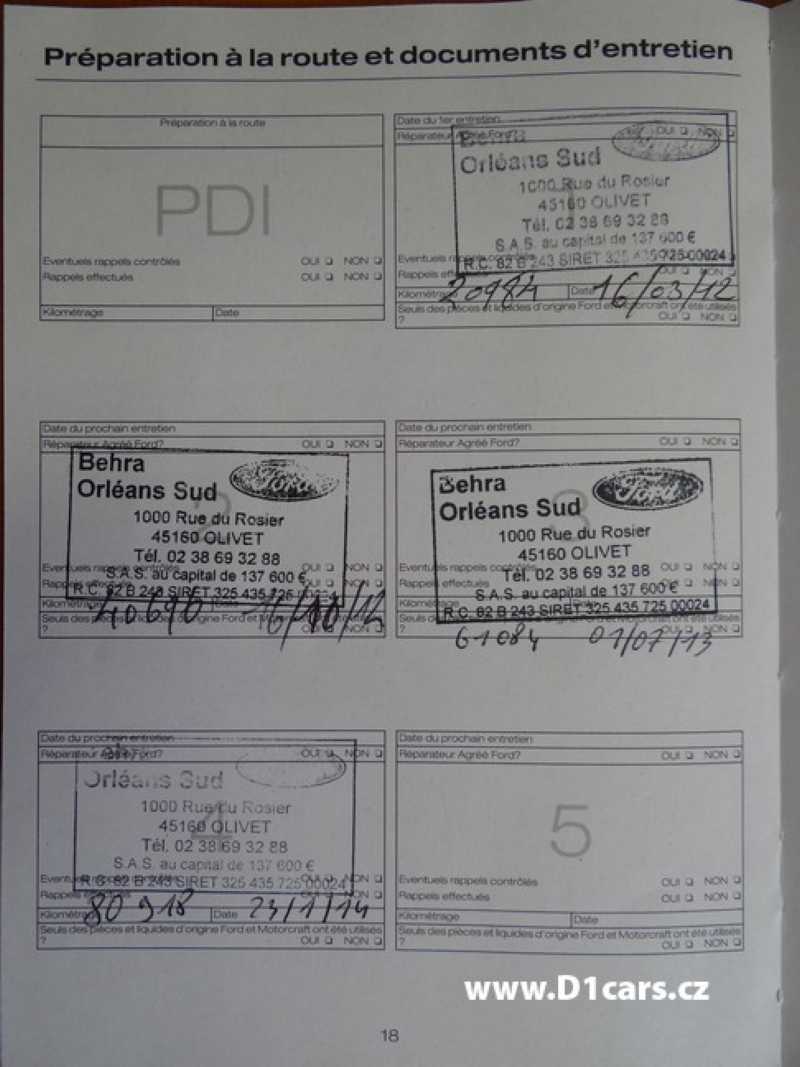 Préparation à la route et documents d'entretien
Préparation à la route
PDI
Eventuels rappels contrôlés OUI ❏ NON ❏
Rappels effectués OUI ❏ NON ❏
Kilométrage Date
Date du 1er entretien
Réparateur Agréé Ford? OUI ❏ NON ❏
Behra
Orléans Sud
1000 Rue du Rosier
45160 OLIVET
Tél. 02 38 69 32 88
S.A.S. au capital de 137 600 €
Eventuels rappels contrôlés
R.C. 82 B 243 SIRET 325 435 725 00024
Rappels OUI ❏ NON ❏
Kilométrage 20984 Date 16/03/12
Seuls des pièces et liquides d'origine Ford et Motorcraft ont été utilisés
? OUI ❏ NON ❏
Date du prochain entretien
Réparateur Agréé Ford? OUI ❏ NON ❏
Behra
Ford
Orléans Sud
2
1000 Rue du Rosier
45160 OLIVET
Tél. 02 38 69 32 88
Eventuels rappels contrôlés OUI ❏ NON ❏
S.A.S. au capital de 137 600 €
Rappels effectués OUI ❏ NON ❏
R.C. 82 B 243 SIRET 325 435 725
Kilométrage 40690 Date 16/10/12
Seuls des pièces et liquides d'origine Ford et Motorcraft ont été utilisés
? OUI ❏ NON ❏
Date du prochain entretien
Réparateur Agréé Ford? OUI ❏ NON ❏
Behra
Ford
Orléans Sud
3
1000 Rue du Rosier
45160 OLIVET
Eventuels rappels contrôlés OUI ❏ NON ❏
Tél. 02 38 69 32 88
Rappels effectués OUI ❏ NON ❏
S.A.S. au capital de 137 600 €
Kilométrage
R.C. 82 B 243 SIRET 325 435 725 00024
Seuls des pièces et liquides d'origine Ford et Motorcraft ont été utilisés
? OUI ❏ NON ❏
61084 01/07/13
Date du prochain entretien
Réparateur Agréé Ford? OUI ❏ NON ❏
Orléans Sud
4
1000 Rue du Rosier
45160 OLIVET
Tél. 02 38 69 32 88
S.A.S. au capital de 137 600 €
Eventuels rappels contrôlés OUI ❏ NON ❏
R.C. 82 B 243 SIRET 325 435 725 00024
Rappels effectués OUI ❏ NON ❏
Kilométrage 80918 Date 23/1/14
Seuls des pièces et liquides d'origine Ford et Motorcraft ont été utilisés
? OUI ❏ NON ❏
Date du prochain entretien
Réparateur Agréé Ford? OUI ❏ NON ❏
5
Eventuels rappels contrôlés OUI ❏ NON ❏
Rappels effectués OUI ❏ NON ❏
Kilométrage Date
Seuls des pièces et liquides d'origine Ford et Motorcraft ont été utilisés
? OUI ❏ NON ❏
www.D1cars.cz
18